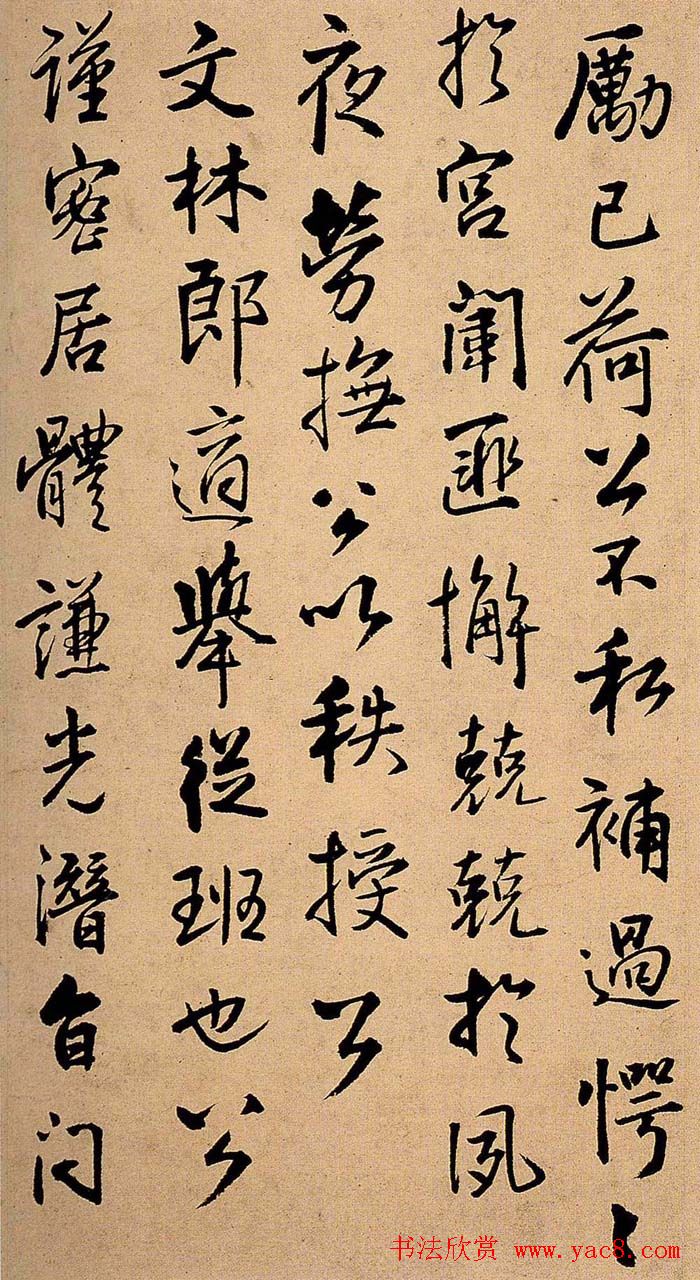 勵己荷公不私補過愕々
於宮闈匪懈兢兢於夙
夜勞撫公以秩授公
文林郎適舉從班也公
謹密居體謙光潛旨問
书法欣赏 www.yac8.com